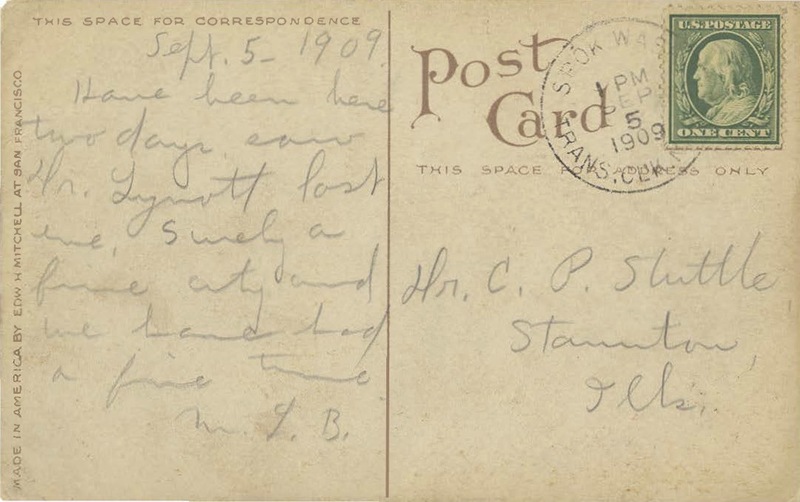 THIS SPACE FOR CORRESPONDENCE
Sept. 5 - 1909.
Have been here
two days, saw
Dr. Lynott last
eve. Surely a
fine city and
we have had
a fine time.
M. L. B.
MADE IN AMERICA BY EDW. H. MITCHELL AT SAN FRANCISCO.
Post
Card
THIS SPACE FOR ADDRESS ONLY
SPOK. WAS
1 PM
SEP
5
1909
TRANS. CLK.
U.S. POSTAGE
ONE CENT
Dr. C. P. Stuttle
Staunton,
Ills.